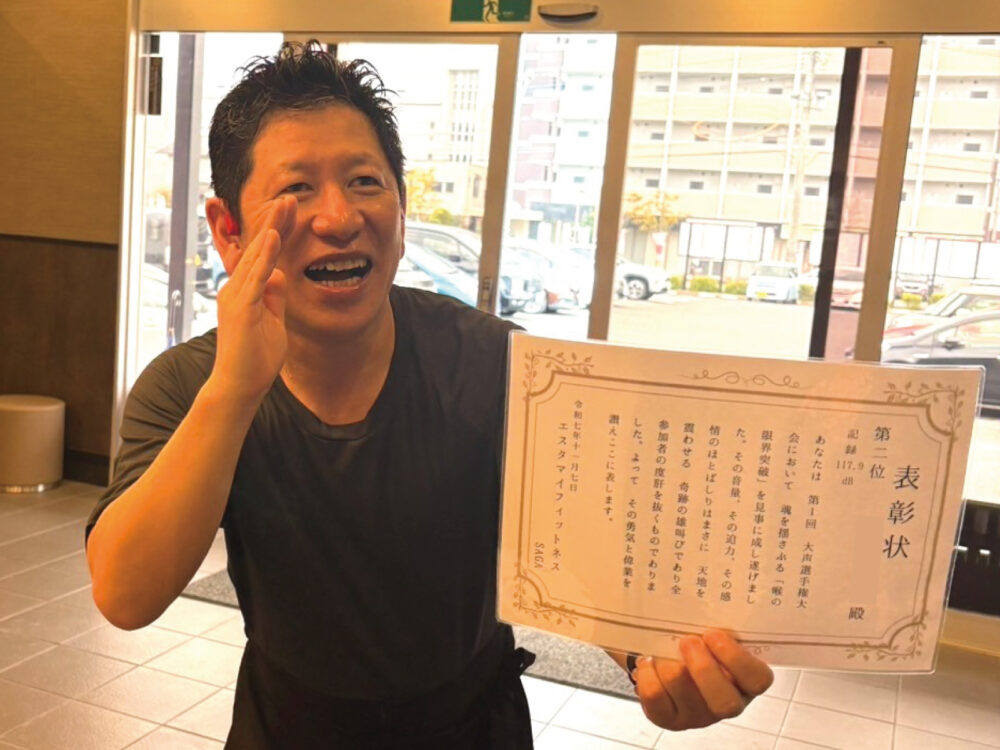 表彰状
第二位
記録
117.9
dB
殿
あなたは 第1回 大声選手権大
会において 魂を揺さぶる「喉の
限界突破」を見事に成し遂げまし
た。その音量、その迫力、その感
情のほとばしりはまさに 天地を
震わせる 奇跡の雄叫びであり全
参加者の度肝を抜くものでありま
した。よって その勇気と偉業を
讃えここに表します。
令和七年十一月七日
エスタマイフィットネス
SAGA